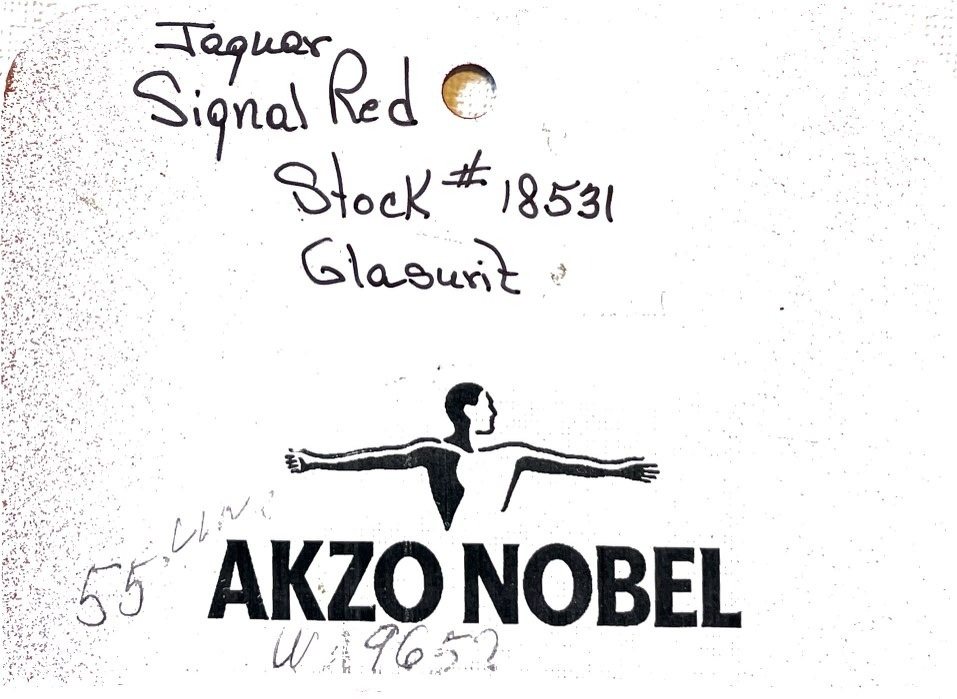 Jaguar
Signal Red
Stock # 18531
Glasurit
55
AKZO NOBEL